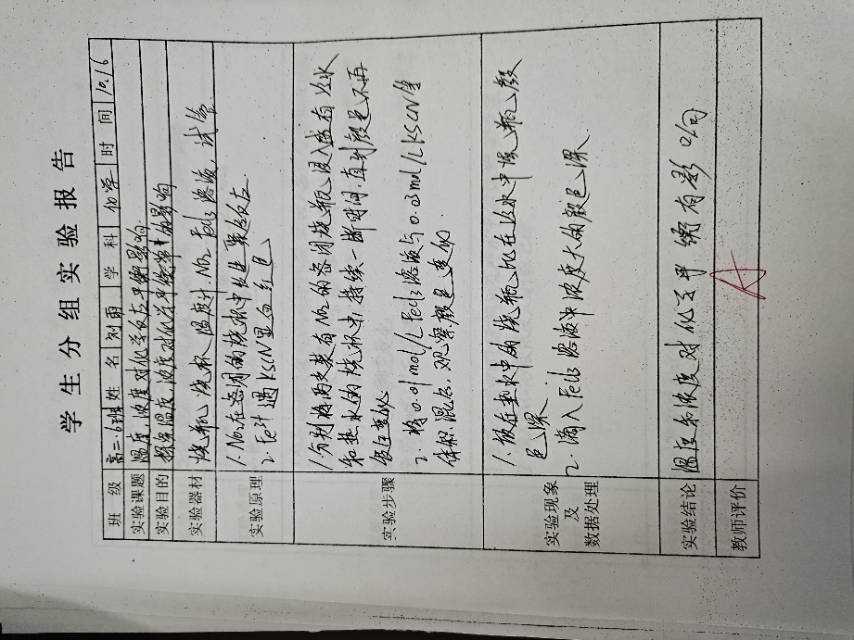 学生分组实验报告
班级 高二.6班 姓名 刘雨 学科 化学 时间 10.16
实验课题 温度,浓度对化学反应平衡影响
实验目的 探究温度,浓度对化学平衡的影响
实验器材 烧瓶 烧杯 温度计 NO₂ FeCl₃溶液, 试管
实验原理 1. NO₂在密闭的烧瓶中发生聚反应.
2. Fe³⁺遇KSCN显血红色
实验步骤 1.分别将两个装有NO₂的密闭烧瓶浸入盛有冰水
和热水的烧杯中,持续一断时间,直到颜色不再
发生变化
2. 将0.01mol/L FeCl₃溶液与0.03mol/L KSCN等
体积混合.观察颜色变化.
实验现象及数据处理 1.放在热水中的烧瓶比在冰水中烧瓶颜
色深.
2.滴入FeCl₃溶液中浓度大的颜色深.
实验结论 温度和浓度对化学平衡有影响
教师评价 A